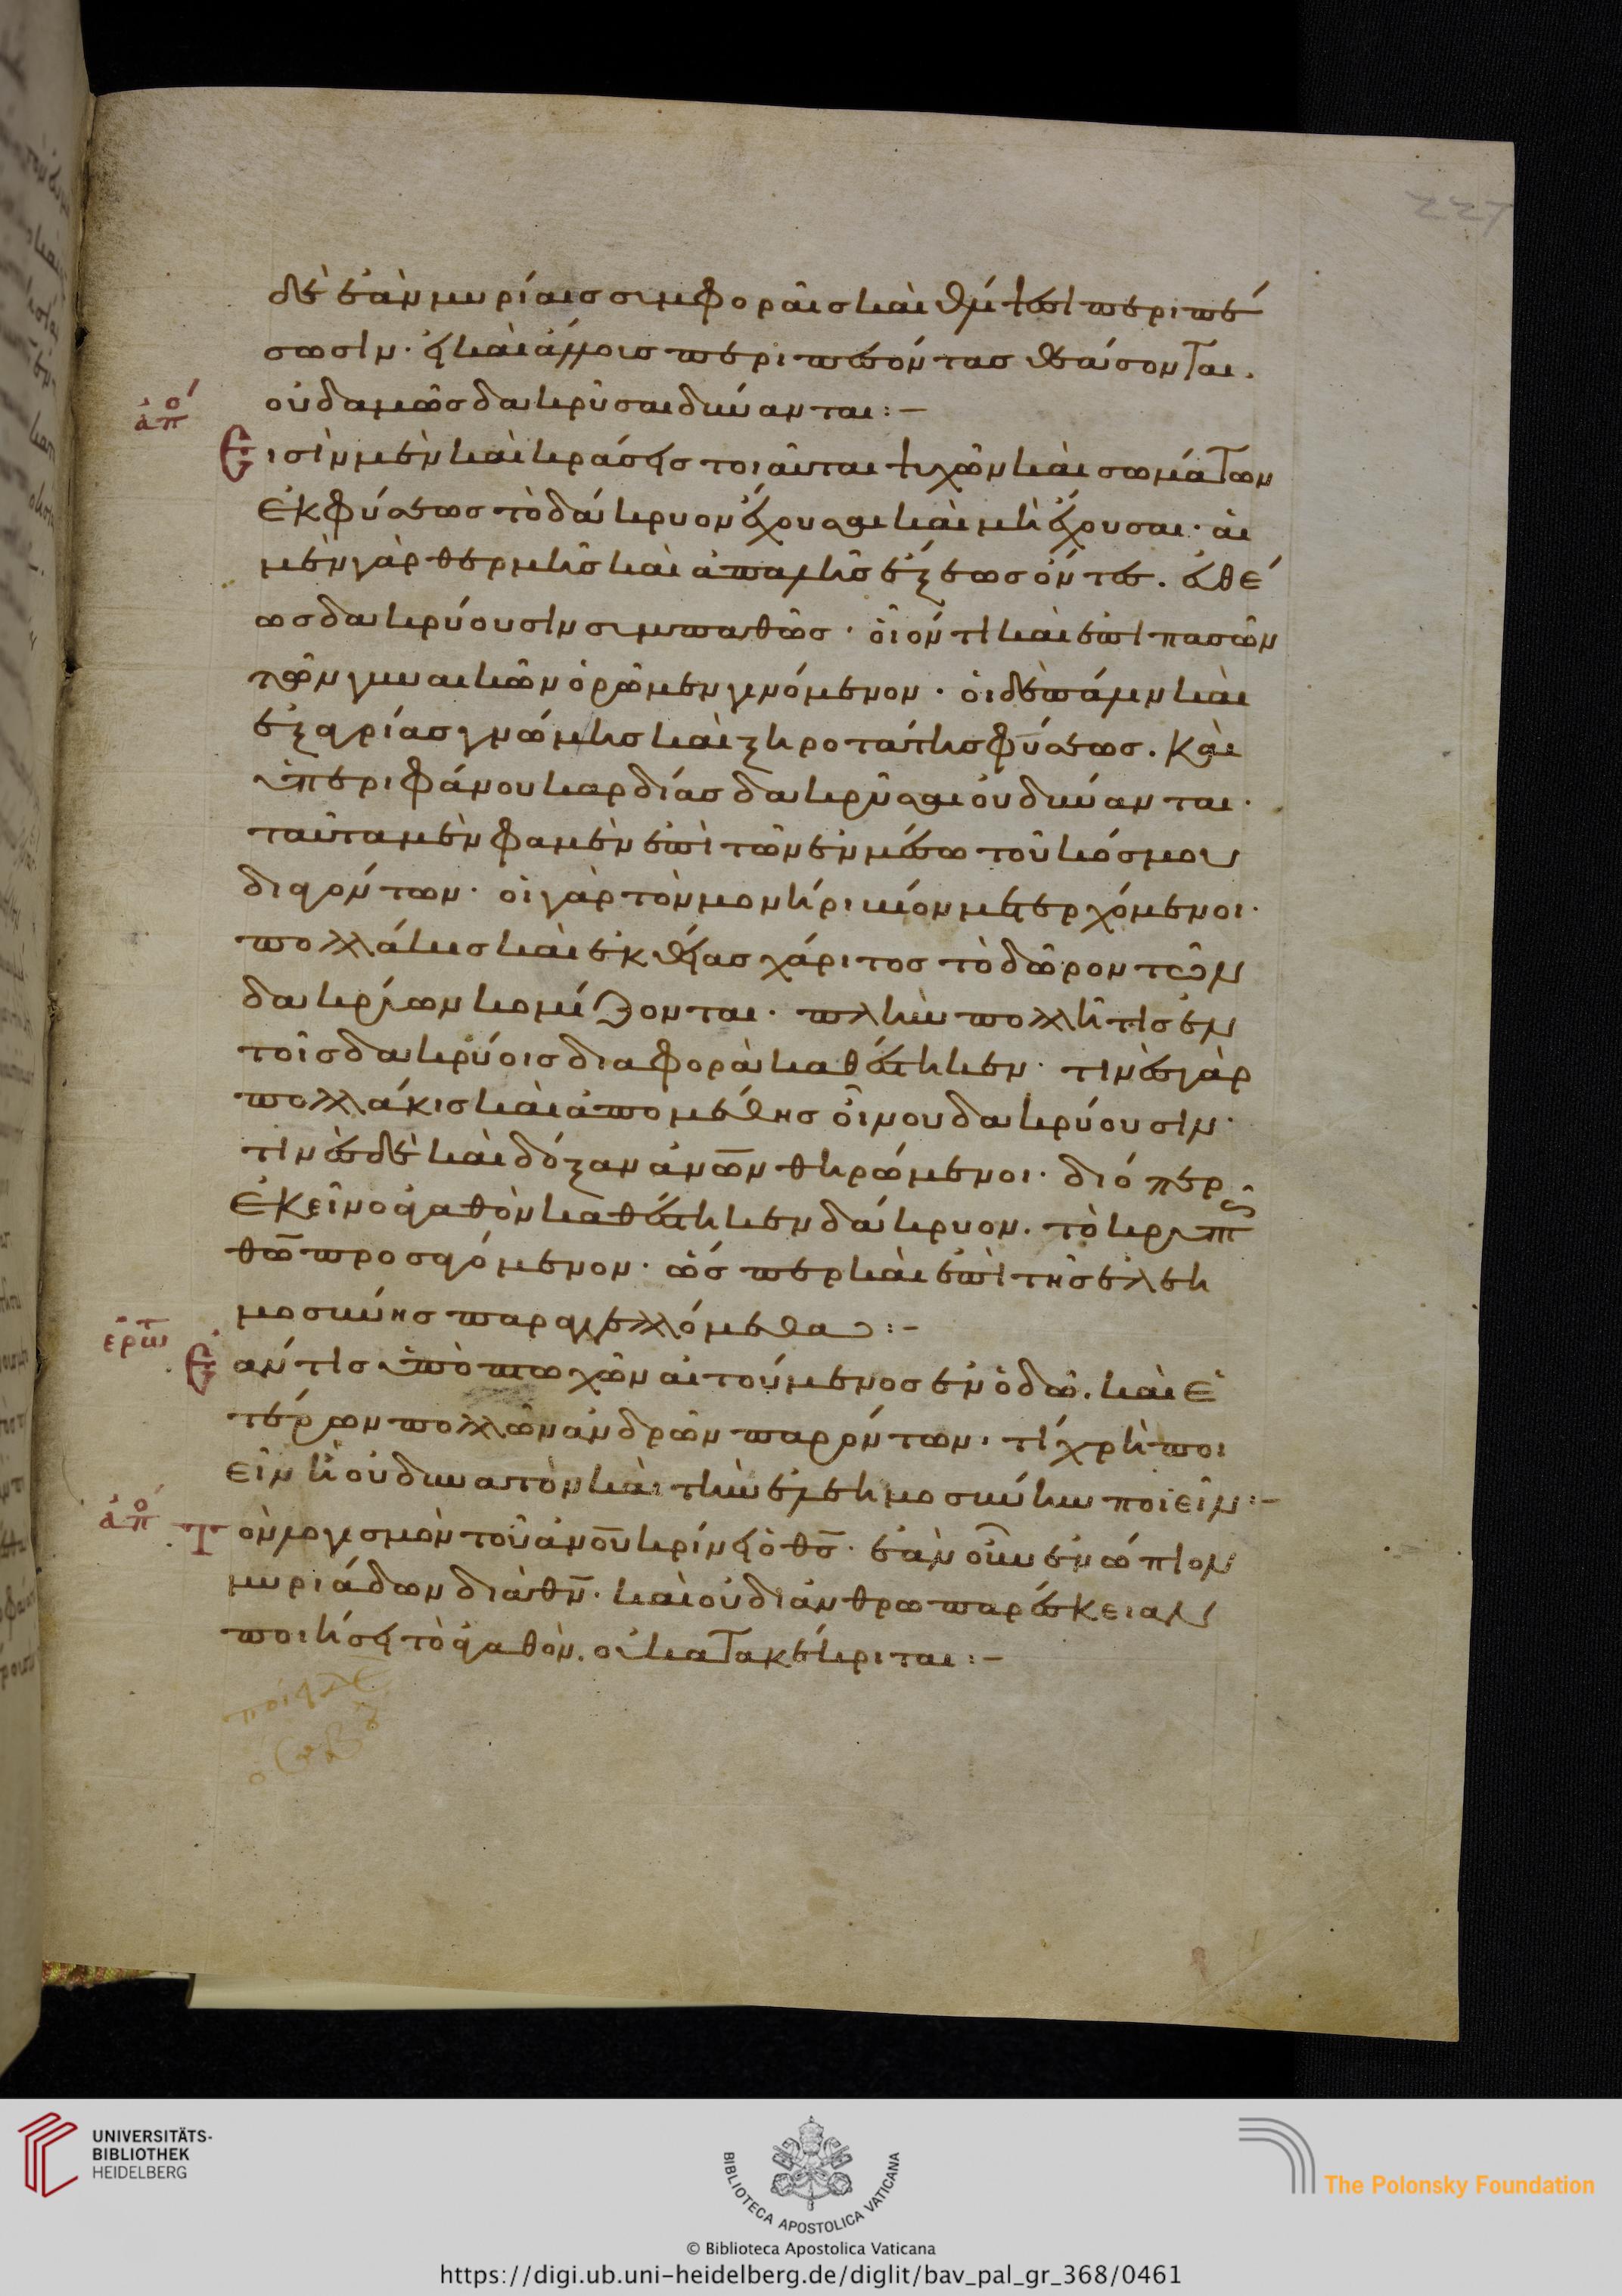 227
δὲ ἐὰν μυρίαις συμφοραῖς καὶ θλίψεσι περιπέ
σωσιν. εἰ καὶ ἄλλοις περιπεσόντας θεάσονται.
οὐδαμῶς δακρῦσαι δύνανται:–
ἀπο
Εἰσὶν μὲν καὶ κράσεις τοιαῦται ψυχῶν καὶ σωμάτων
ἐκ φύσεως τὸ δάκρυον ἔχουσαι καὶ μὴ ἔχουσαι· αἱ
μὲν γὰρ θερμῆς καὶ ἁπαλῆς ἕξεως ὄντες. εὐθέ
ως δακρύουσιν συμπαθῶς· οἷόν τι καὶ ἐπὶ πασῶν
τῶν γυναικῶν ὁρῶμεν γινόμενον. οἱ δὲ πάλιν καὶ
ἐξ ἀγρίας γνώμης καὶ ξηροτάτης φύσεως. καὶ
ὑπεριφάνου καρδίας δακρῦσαι οὐ δύνανται.
ταῦτα μὲν φαμὲν ἐπὶ τῶν ἐν μέσω τοῦ κόσμου
διαγόντων· οἱ γὰρ τὸν μονήρι βίον μετερχόμενοι.
πολλάκις καὶ ἐκ θείας χάριτος τὸ δῶρον τῶν
δακρύων κομίζονται. πλὴν πολλή τις ἐν
τοῖς δακρύοις διαφορὰ καθέστηκεν· τινὲς γὰρ
πολλάκις καὶ ἀπο μέθης οἴνου δακρύουσιν·
τινὲς δὲ καὶ δόξαν ἀνῶν θηρώμενοι. διόπερ
ἐκεῖνο ἀγαθὸν καθέστηκεν δάκρυον. τὸ κρυπτῶς
θῶ προσαγόμενον· ὥσπερ καὶ ἐπὶ τῆς ἐλεη
μοσύνης παραγγελλόμεθα:–
ἐρωτ
Ἐάν τις ὑπὸ πτωχῶν αἰτούμενος ἐν ὁδῶ. καὶ ἑ
τέρων πολλῶν ἀνδρῶν παρόντων, τί χρὴ ποι
εῖν ἢ οὐ δυνατὸν καὶ τὴν ἐλεημοσύνην ποιεῖν:–
ἀπο
Τὸν λογισμὸν τοῦ ἀνοῦ κρίνει ὁ θς. ἐὰν οὖν ἐνώπιον
μυριάδων διὰ θν. καὶ οὐ δι ἀνθρωπαρέσκειαν
ποιήσει τὸ ἀγαθὸν. οὐ κατακέκριται:–
UNIVERSITÄTS-
BIBLIOTHEK
HEIDELBERG
BIBLIOTECA APOSTOLICA VATICANA
The Polonsky Foundation
© Biblioteca Apostolica Vaticana
https://digi.ub.uni-heidelberg.de/diglit/bav_pal_gr_368/0461